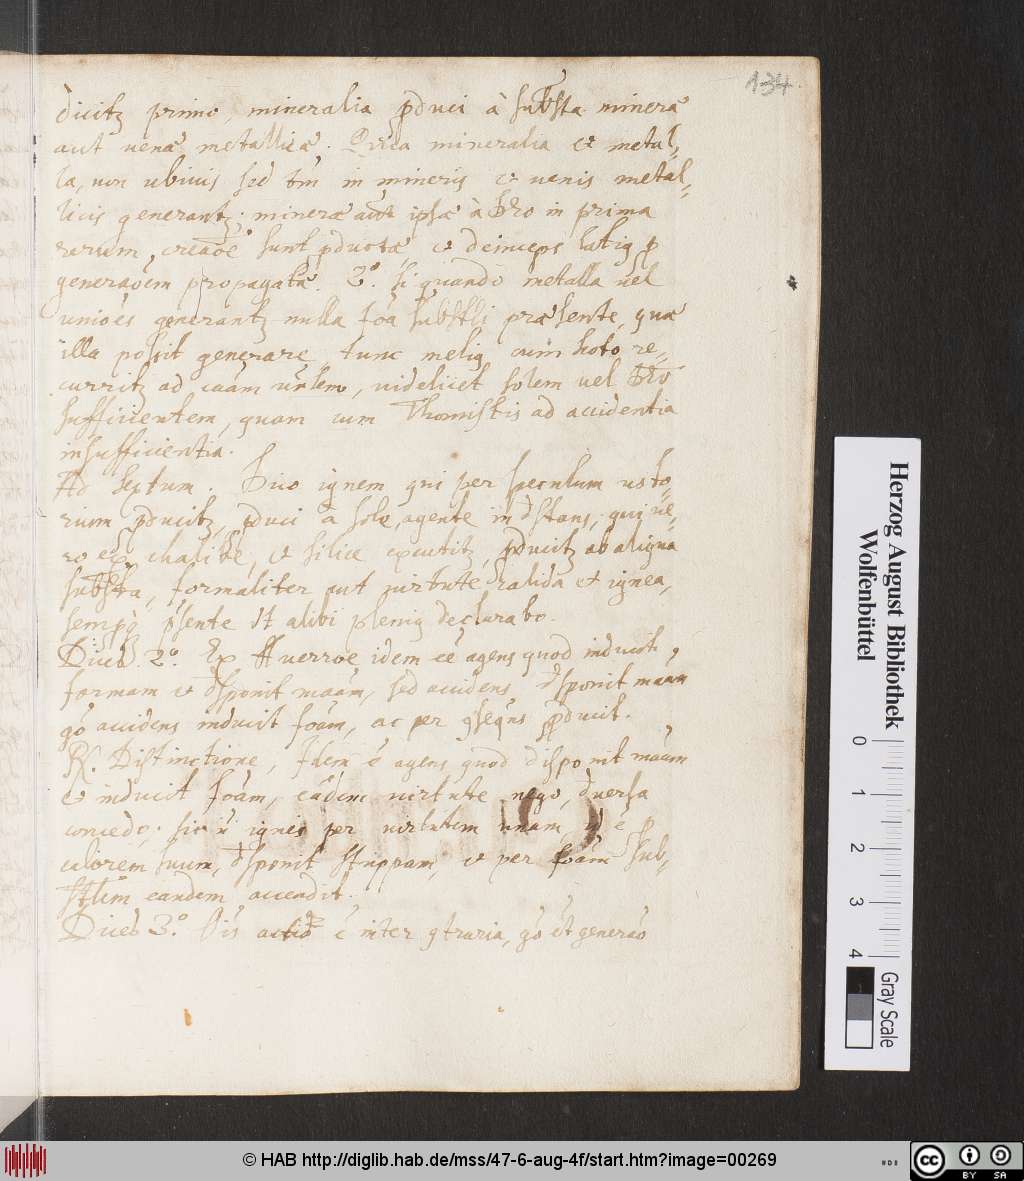 134.
dicitz primo, mineralia pduci à substa minerae
aut uenae metallicae. mineralia et metal-
la, non ubiuis sed tm in mineris et uenis metal-
licis generantz; minerae aūt ipsae à Deo in prima
rerum creaōe sunt pductae et deinceps p
generaōem propagatae. 2.° si quando metalla uel
generantz nulla foā substli praesente, quae
illa possit generare, tunc meliq cum re-
curritz ad cuām uirlem, uidelicet solem uel Deō
sufficientem, quam cum Thomistis ad accidentia
insufficientia.
Ad sextum. Dico ignem qui per speculum usto-
rium pducitz, pduci à sole agente in distans; qui ue-
ro ex chalibe, et silice excutitz, pducitz ab aliqua
substa, formaliter aut uirtute calida et ignea,
semp psente ut alibi pleniq declarabo.
Dices 2.° Ex Auerroe idem eē agens quod inducit
formam et disponit maām, sed accidens disponit maam
gō accidens inducit foām, ac per qseqns pducit.
R. Distinctione, Idem ē agens quod disponit maam
et inducit foām, eādem uirtute nego, diuersa
concedo; sic n ignis per uirtutem unam, ē
calorem suum, disponit stuppam, et per foām sub-
stlem eandem accendit.
Dices 3.° Ois actio ē inter qtraria, gō et generaō
Herzog August Bibliothek
Wolfenbüttel
0 1 2 3 4
Gray Scale
© HAB http://diglib.hab.de/mss/47-6-aug-4f/start.htm?image=00269
cc BY SA